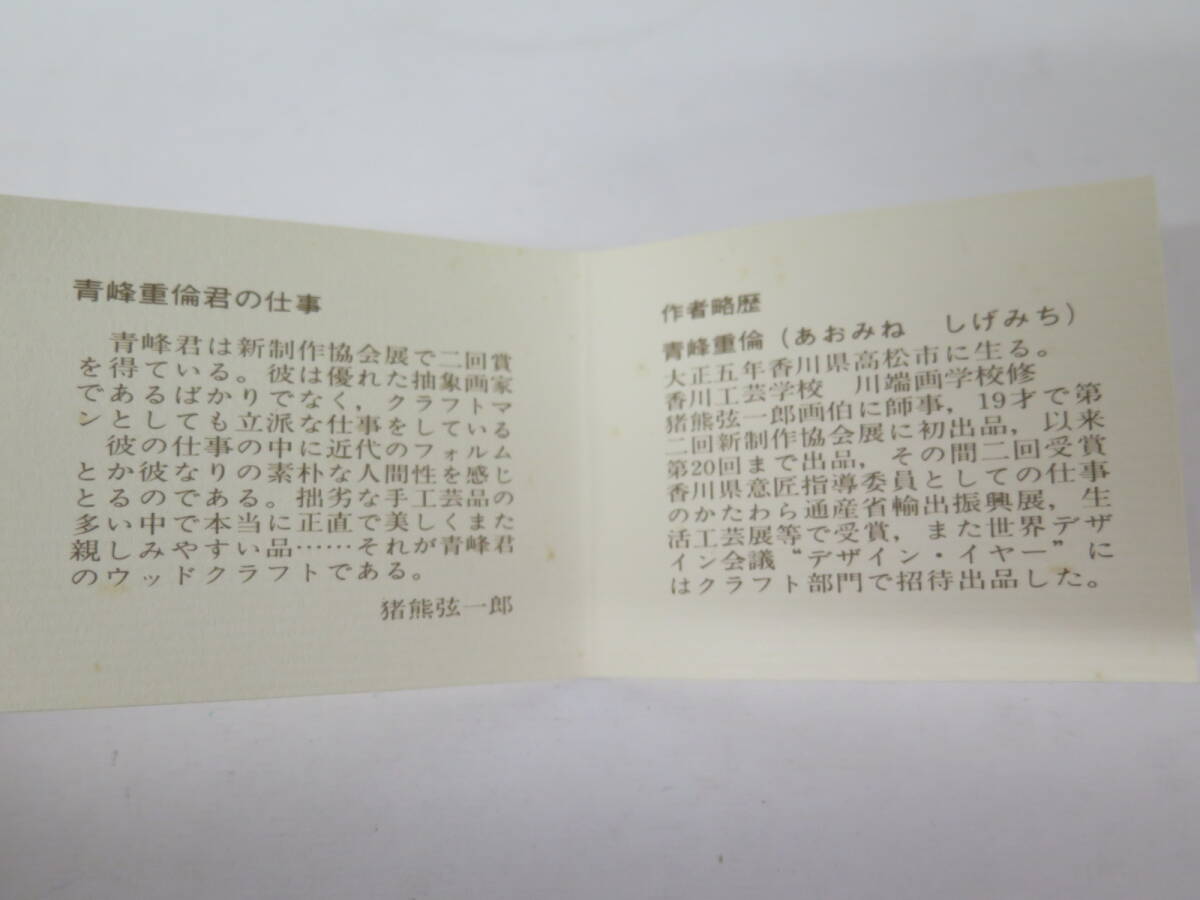 青峰重倫君の仕事
青峰君は新制作協会展で二回賞
を得ている。彼は優れた抽象画家
であるばかりでなく，クラフトマ
ンとしても立派な仕事をしている
彼の仕事の中に近代のフォルム
とか彼なりの素朴な人間性を感じ
とるのである。拙劣な手工芸品の
多い中で本当に正直で美しくまた
親しみやすい品……それが青峰君
のウッドクラフトである。
猪熊弦一郎
作者略歴
青峰重倫（あおみね　しげみち）
大正五年香川県高松市に生る。
香川工芸学校　川端画学校修
猪熊弦一郎画伯に師事，19才で第
二回新制作協会展に初出品，以来
第20回まで出品，その間二回受賞
香川県意匠指導委員としての仕事
のかたわら通産省輸出振興展，生
活工芸展等で受賞，また世界デザ
イン会議“デザイン・イヤー”に
はクラフト部門で招待出品した。